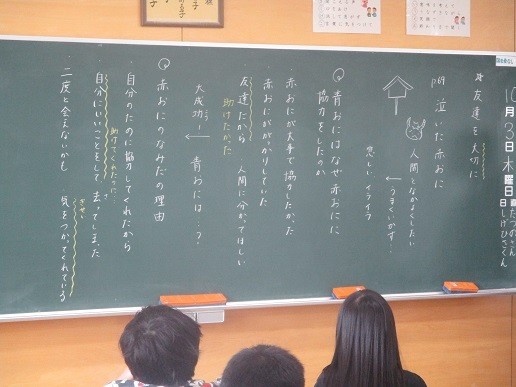 10月3日木曜日
日直
たつのしん
しげひさくん
☆友達を大切に
P69 泣いた赤おに
人間となかよくしたい
↓うまくいかず…
悲しい イライラ
Q 青おにはなぜ赤おにに
協力をしたのか
赤おにが大事で協力したかった
赤おにががっかりしていた
友達だから 人間に分かってほしい
助けたかった
大成功!
↓
青おには…?
Q 赤おにのなみだの理由
自分のために協力してくれたから
助けてくれたのに…
自分にいいことをして去ってしまった
二度と会えないかも
気をつかってくれている